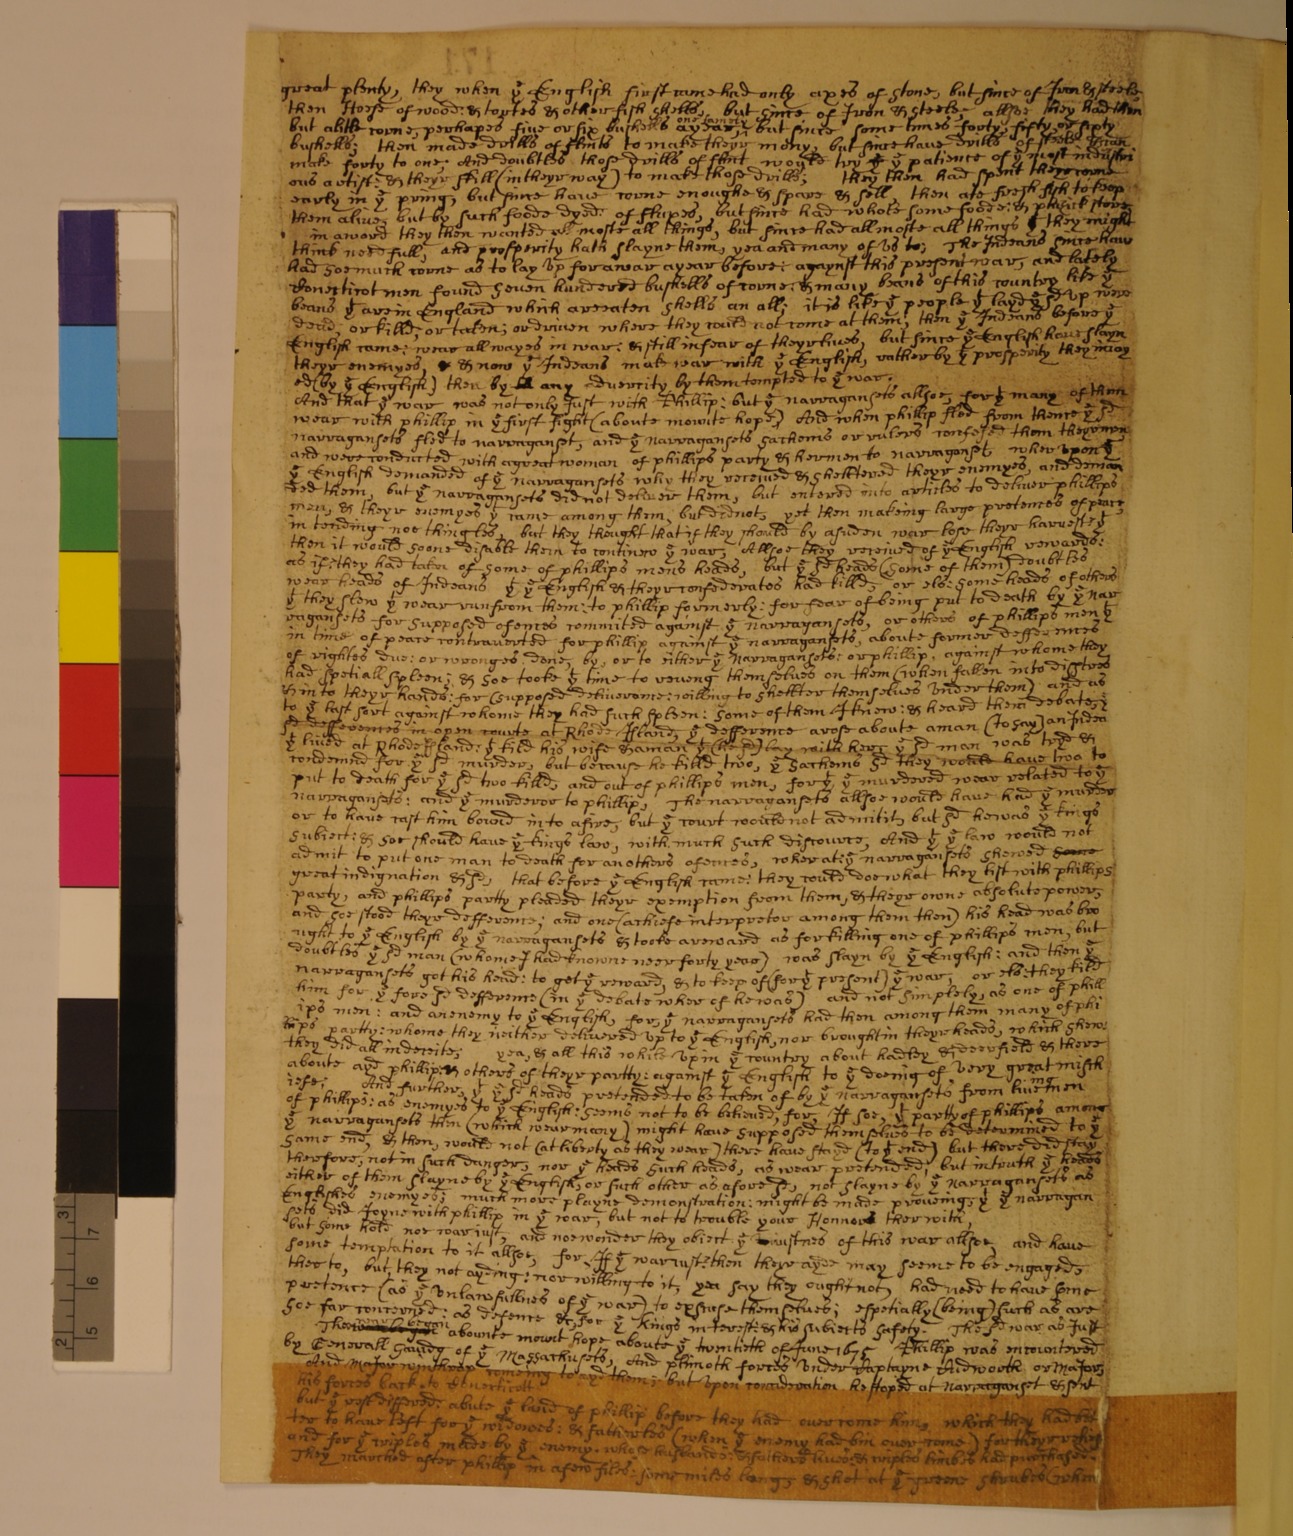 great plenty, they when ye English first came had only axes of stone, but since of Iron & steele
then Horse of wood: & tortes & other fish shells, but since of Iron & steele, allsoe they had then
but alitle corne, perhapes five or six bushells ayear, but since some times forty, fifty, or sixty
bushells; then made drills of flints to make theyr mony, but since have drills of steele
make forty to one; And doubtles those drills of flint would try ye patience of ye most industri
ous artist: & theyr skill (in theyr way) to make those drills; they then had spent theyr corne
early in ye spring, but since have corne enoughe & spare & sell, then ate fresh fish to keep
them alive; but by such foode dyed of flupes, but since had whole some foode: &
in aword they then wanted all moste all things, but since had all moste all things they might
think needfull, and prosperity hath slayne them, yea and many of us to; The Indeans since have
had soe much corne as to lay up for awar ayear before: agaynst this present war, and lately
Conecticot men found seven hundered bushells of corne: & many beans of this country like ye
beans yt are in England which are eaten shells an all; it is like ye people yt layd ye sd up were
dead, or killd, or taken; or driven where they could not come at them; then ye Indeans before ye
English came: wear all wayes in war: & still in fear of theyr lives, but since ye English have slayn
theyr enemyes, & now ye Indeans make war with ye English, rather by ye prosperity they injoy
ed (by ye English) then by any adversity by them tempted to ye war.
And that ye war was not only Just with Phillip: but ye narragansets allsoe; for yt many of them
wear with phillip in ye first fight (aboute mowite hope) And when phillip fled from thence ye sd
narragansets fled to narraganset, and ye narragansets sachems or rulers confesed them theyr men
and were conducted with agreat woman of phillips party & her men to narraganset where upon ye
ye English demanded of ye narragansets why they received & sheltered theyr enemyes, and deman
ded them, but ye narragansets did not deliver them, but entered into articles to deliver phillips
men, & theyr enemyes yt came among them, but did not, yet then making large pretences of peace,
in tending noe thing les, but they thought that if they should by asuden war lose theyr harvest yt
then it would soone disable them to continew ye war, Allsoe they received of ye English rewards:
as if they had taken of some of phillips mens heads, but ye sd heads (some of them) doubtles
wear heads of Indeans yt ye English & theyr confederates had killd; or else some heads of others
yt they slew yt wear run from them: to phillip formerly: for fear of being put to death by ye Nar
ragansets for supposed ofences commited against ye Narragansets, or others of phillips men yt
in time of peace contraverted for phillip against ye narragansets, aboute former defferences
of rightes due: or wronges done, by, or to either ye Narragansets: or phillip, against whome they
had spetiall spleen; & soe tooke ye time to reveng themselves on them (when fallen into distres
& in to theyr hands: for (supposed deliverance: willing to shellter themselves under them) and as
to ye last sort against whome they had such spleen: some of them I knew: & heard them debate ye
sd defferences in open courte at Rhode Island, ye defference arose aboute aman (to say) an Indea
yt lived at Rhode Island: yt kild his wife & aman yt (he sd) lay with her; ye sd man was tryd &
condemnd for ye sd murder, but because he killd two, ye sachems sd they would have two to
put to death for ye sd two killd, and out of phillips men, for yt ye murdered wear related to ye
narragansets: and ye murderor to phillip, The narragansets allsoe would have had ye murder
or to have cast him bound in to afire, but ye court would not admitit, but sd he was ye kings
subject: & soe should have ye kings law, with much such discource, And yt ye law would not
admit to put one man to death for anothers ofences, wher at: ye narragansets shewed
great indignation & sd, that before ye English came: they could doe what they list with phillips
party, and phillips partty pleaded theyr exemption from them, & theyr owne absolute power;
and soe stood theyr defference; and one (a chiefe interpretor among them then) his head was bro
ught to ye English by ye narragansets & tooke areward as for killing one of phillips men, but
doubtles ye sd man (whome I had knowne neer forty years) was slayn by ye English: and then ye
narragansets got his head: to get ye reward, & to keep of (for ye present) ye war, or else they kild
him for ye fore sd defference (in ye debate wher of he was) and not simplely, as one of phill
ips men: and an enemy to ye English, for, ye narragansets had then among them many of phi
llips partty: whome they neither delivered up to ye English, nor brought in theyr heads, which shew:
they did all in deceite; yea, & all this while up in ye country about hadley & deerfield & there
aboute ayd phillip & others of theyr partty: against ye English to ye doeing of very great misch
iefe; And further, yt ye sd heads pretended to be taken of by ye narragansets from liveing men
of phillips: as enemyes to ye English: seems not to be believed, for, If soe, ye party of phillips among
ye narragansets then (which wear many) might have supposed themselves to be determined to ye
same end, & then, would not (at liberty as they wear) there have stayd (to ye end) but there did stay
therefore, not in such danger, nor ye heads such heads, as wear pretended, but in truth ye heads
either of them slayne by ye English, or such other as afore sd, not slayne by ye narragansets as
Englishes enemyes; much more playne demonstration: might be made proveing; yt ye narragan
sets did Joyne with phillip in ye war, but not to trouble your Honnors ther with,
but some hold noe war just, and noe wonder they object ye unjustnes of this war allsoe, and have
some temptation to it allsoe, for If ye war just: then theyr ayde may seeme to be engaged
ther to, but, they not ayding: nor willing to it, yea say they ought not, had need to have some
pretence (as ye unlawfullnes of ye war) to excuse themselves; espetially (being) such as are
soe far concerned: as defence &c, for ye kings interest: & his subjects safety. The sd war as Just
Then war began aboute mowt hope aboute ye twentieth of June 1675 Phillip was encountered
by Generall Saveg of ye Massachusets, And plimoth forces under Captayne Cudworth or Major,
And Major winthrop comeing to ayd them; but upon consideration he stoped at Narraganset & sent
his forces back to Conecticott
but ye rest differed: abute ye land of phillip before they had over come him, which they had bet
ter to have left for ye widowes: & fatherles (when ye enemy had bin over come) for theyr
and for ye criples made by ye enemy. whose husbands: & fathers lives: & criples limbes had purchased.
They marched after phillip in afew files: some miles long; & shot at ye greene shrubes (when